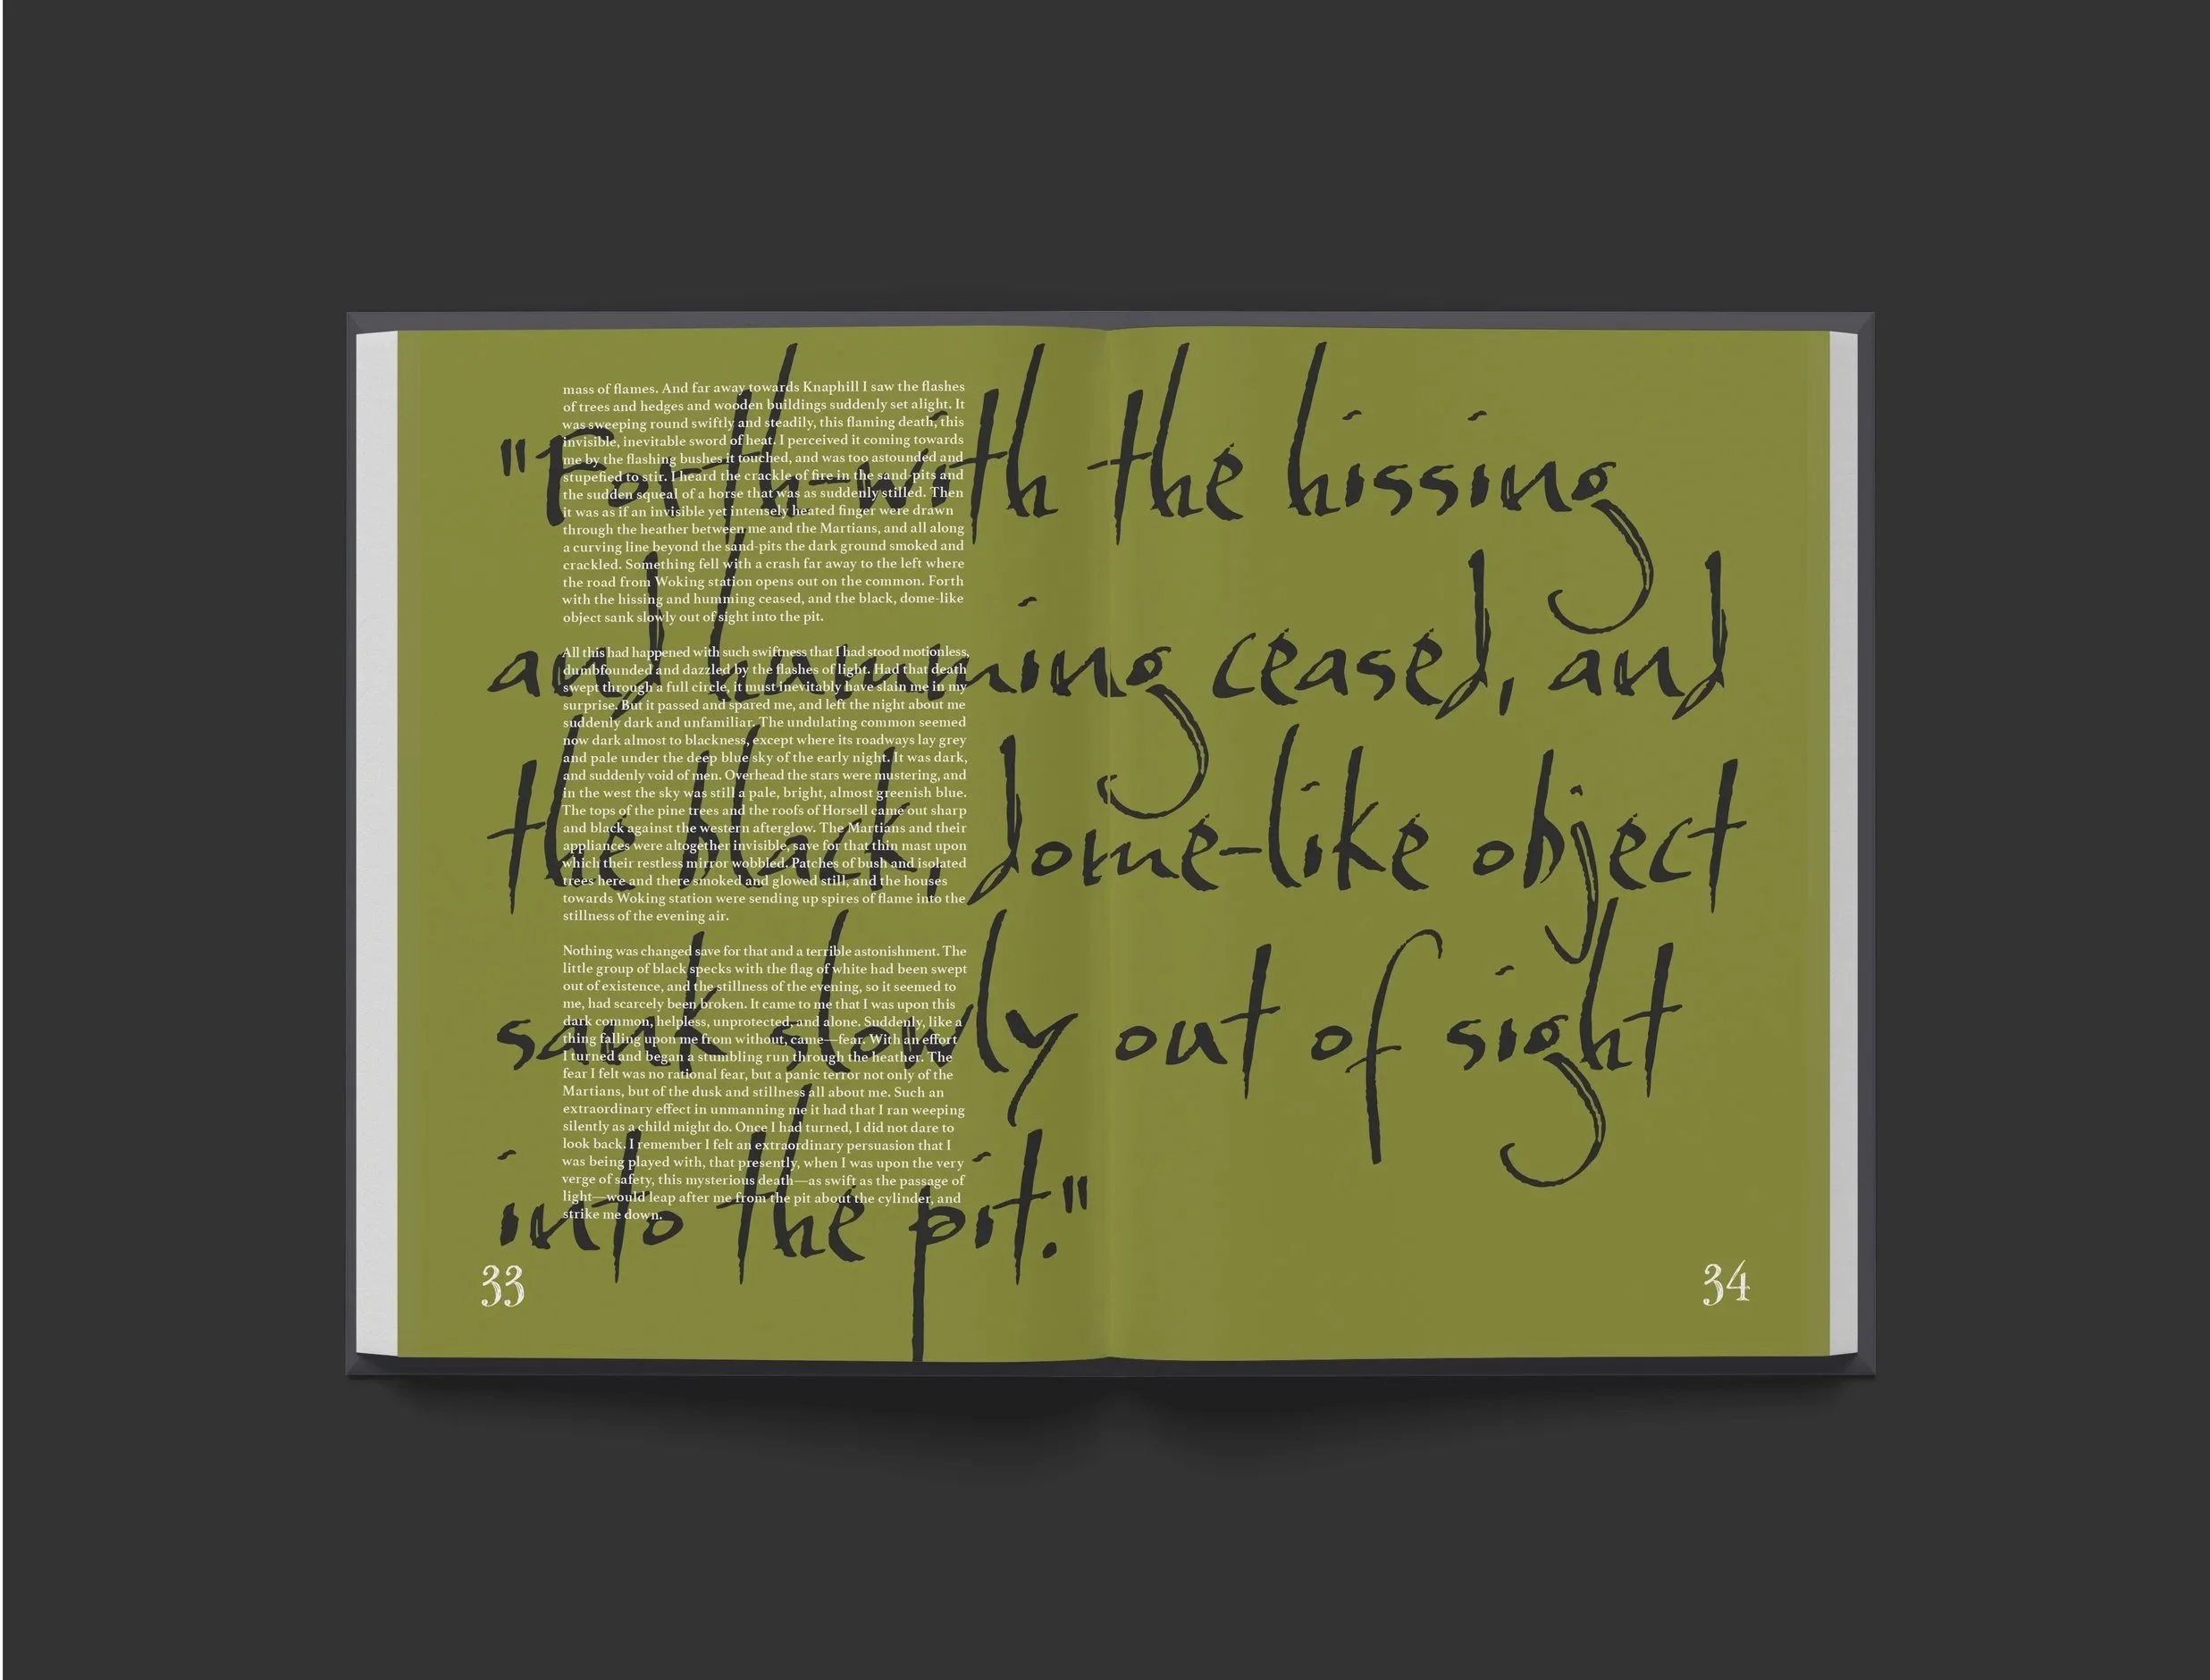 mass of flames. And far away towards Knaphill I saw the flashes
of trees and hedges and wooden buildings suddenly set alight. It
was sweeping round swiftly and steadily, this flaming death, this
invisible, inevitable sword of heat. I perceived it coming towards
me by the flashing bushes it touched, and was too astounded and
stupefied to stir. I heard the crackle of fire in the sand-pits and
the sudden squeal of a horse that was as suddenly stilled. Then
it was as if an invisible yet intensely heated finger were drawn
through the heather between me and the Martians, and all along
a curving line beyond the sand-pits the dark ground smoked and
crackled. Something fell with a crash far away to the left where
the road from Woking station opens out on the common. Forth
with the hissing and humming ceased, and the black, dome-like
object sank slowly out of sight into the pit.
All this had happened with such swiftness that I had stood motionless,
dumbfounded and dazzled by the flashes of light. Had that death
swept through a full circle, it must inevitably have slain me in my
surprise. But it passed and spared me, and left the night about me
suddenly dark and unfamiliar. The undulating common seemed
now dark almost to blackness, except where its roadways lay grey
and pale under the deep blue sky of the early night. It was dark,
and suddenly void of men. Overhead the stars were mustering, and
in the west the sky was still a pale, bright, almost greenish blue.
The tops of the pine trees and the roofs of Horsell came out sharp
and black against the western afterglow. The Martians and their
appliances were altogether invisible, save for that thin mast upon
which their restless mirror wobbled. Patches of bush and isolated
trees here and there smoked and glowed still, and the houses
towards Woking station were sending up spires of flame into the
stillness of the evening air.
Nothing was changed save for that and a terrible astonishment. The
little group of black specks with the flag of white had been swept
out of existence, and the stillness of the evening, so it seemed to
me, had scarcely been broken. It came to me that I was upon this
dark common, helpless, unprotected, and alone. Suddenly, like a
thing falling upon me from without, came—fear. With an effort
I turned and began a stumbling run through the heather. The
fear I felt was no rational fear, but a panic terror not only of the
Martians, but of the dusk and stillness all about me. Such an
extraordinary effect in unmanning me it had that I ran weeping
silently as a child might do. Once I had turned, I did not dare to
look back. I remember I felt an extraordinary persuasion that I
was being played with, that presently, when I was upon the very
verge of safety, this mysterious death—as swift as the passage of
light—would leap after me from the pit about the cylinder, and
strike me down.
"Forth-with the hissing
and humming ceased, and
the black, dome-like object
sank slowly out of sight
into the pit."
33
34